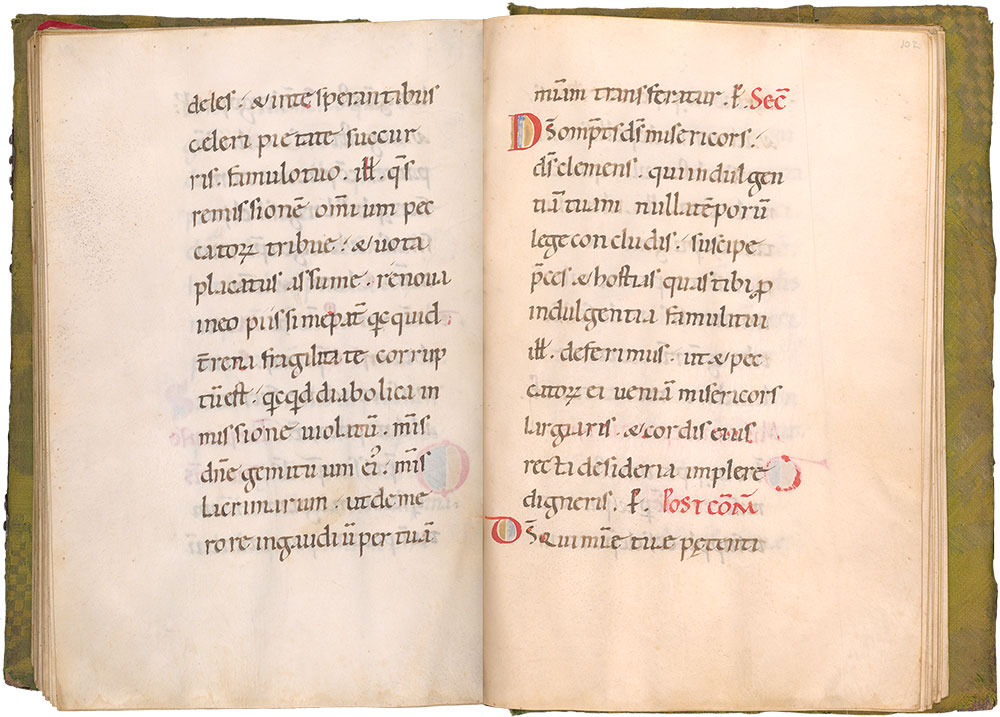 deles· & inte sperantibus
celeri pietate succur
ris· famulo tuo· ill· q̄s
remissionē om̄ium pec
catorꝝ tribue· & uota
placatus assume· renoua
in eo piissime pat̄ q̇c quid
t̄rena fragilitate corrup
tū est· q̇cq̇d diabolica in
missione uiolatū· mis̄
dn̄e gemituum ei᷒· mis̄
lacrimarum· ut de me
rore in gaudiū per tuā
102
mīam transferatur· ꝑ· Sec̄
Ds̄ omp̄ts ds̄ misericors·
ds̄ clemens· qui indulgen
tiā tuam nulla tēporū
lege concludis· suscipe
p̄ces· & hostias quas tibi ꝓ
indulgentia famuli tui
ill· deferimus ut & pec
catorꝝ ei ueniā misericors
largiaris· & cordis eius
recti desideria implere
digneris· ꝑ· Post com̄
Ds̄ qui mīe tue potenti